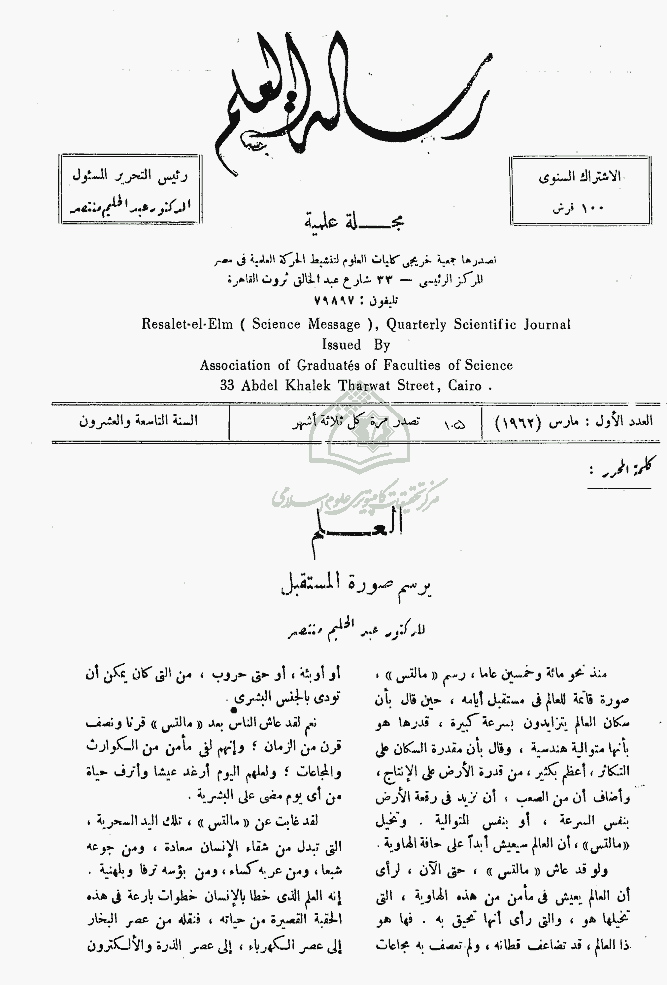 رسالة العلم
رئيس التحرير المسئول
الدكتور عبد الحليم منتصر
الاشتراك السنوى
١٠٠ قرش
مجلة علمية
تصدرها جمعية خريجى كليات العلوم لتنشيط الحركة العلمية فى مصر
المركز الرئيسى — ٣٣ شارع عبد الخالق ثروت القاهرة
تليفون : ٧٩٨٩٧
Resalet-el-Elm ( Science Message ), Quarterly Scientific Journal
Issued By
Association of Graduatés of Faculties of Science
33 Abdel Khalek Tharwat Street, Cairo .
العدد الأول : مارس (١٩٦٢)
١٠٥ تصدر مرة كل ثلاثة أشهر
السنة التاسعة والعشرون
كلمة المحرر :
مركز تحقيقات كامپيوترى علوم اسلامى
العلم
يرسم صورة المستقبل
للدكتور عبد الحليم منتصر
منذ نحو مائة وخمسين عاما ، رسم « مالتس » ،
صورة قاتمة للعالم فى مستقبل أيامه ، حين قال بأن
سكان العالم يتزايدون بسرعة كبيرة ، قدرها هو
بأنها متوالية هندسية ، وقال بأن مقدرة السكان على
التكاثر ، أعظم بكثير ، من قدرة الأرض على الإنتاج ،
وأضاف أن من الصعب ، أن نزيد فى رقعة الأرض
بنفس السرعة ، أو بنفس المتوالية . وتخيل
«مالتس» ، أن العالم سيعيش أبداً على حافة الهاوية .
ولو قد عاش « مالتس » ، حتى الآن ، لرأى
أن العالم يعيش فى مأمن من هذه الهاوية ، التى
تخيلها هو ، والتى رأى أنها تحيق به . فها هو
ذا العالم ، قد تضاعف قطانه ، ولم تعصف به مجاعات
أو أوبئة ، أو حتى حروب ، من التى كان يمكن أن
تودى بالجنس البشرى .
نعم لقد عاش الناس بعد « مالتس » قرنا ونصف
قرن من الزمان ؛ وإنهم لفى مأمن من الكوارث
والمجاعات ؛ ولعلهم اليوم أرغد عيشا وأترف حياة
من أى يوم مضى على البشرية .
لقد غابت عن « مالتس » ، تلك اليد السحرية ،
التى تبدل من شقاء الإنسان سعادة ، ومن جوعه
شبعا ، ومن عريه كساء ، ومن بؤسه ترفا وبلهنية .
إنه العلم الذى خطا بالإنسان خطوات بارعة فى هذه
الحقبة القصيرة من حياته ، فنقله من عصر البخار
إلى عصر الكهرباء ، إلى عصر الذرة والألكترون